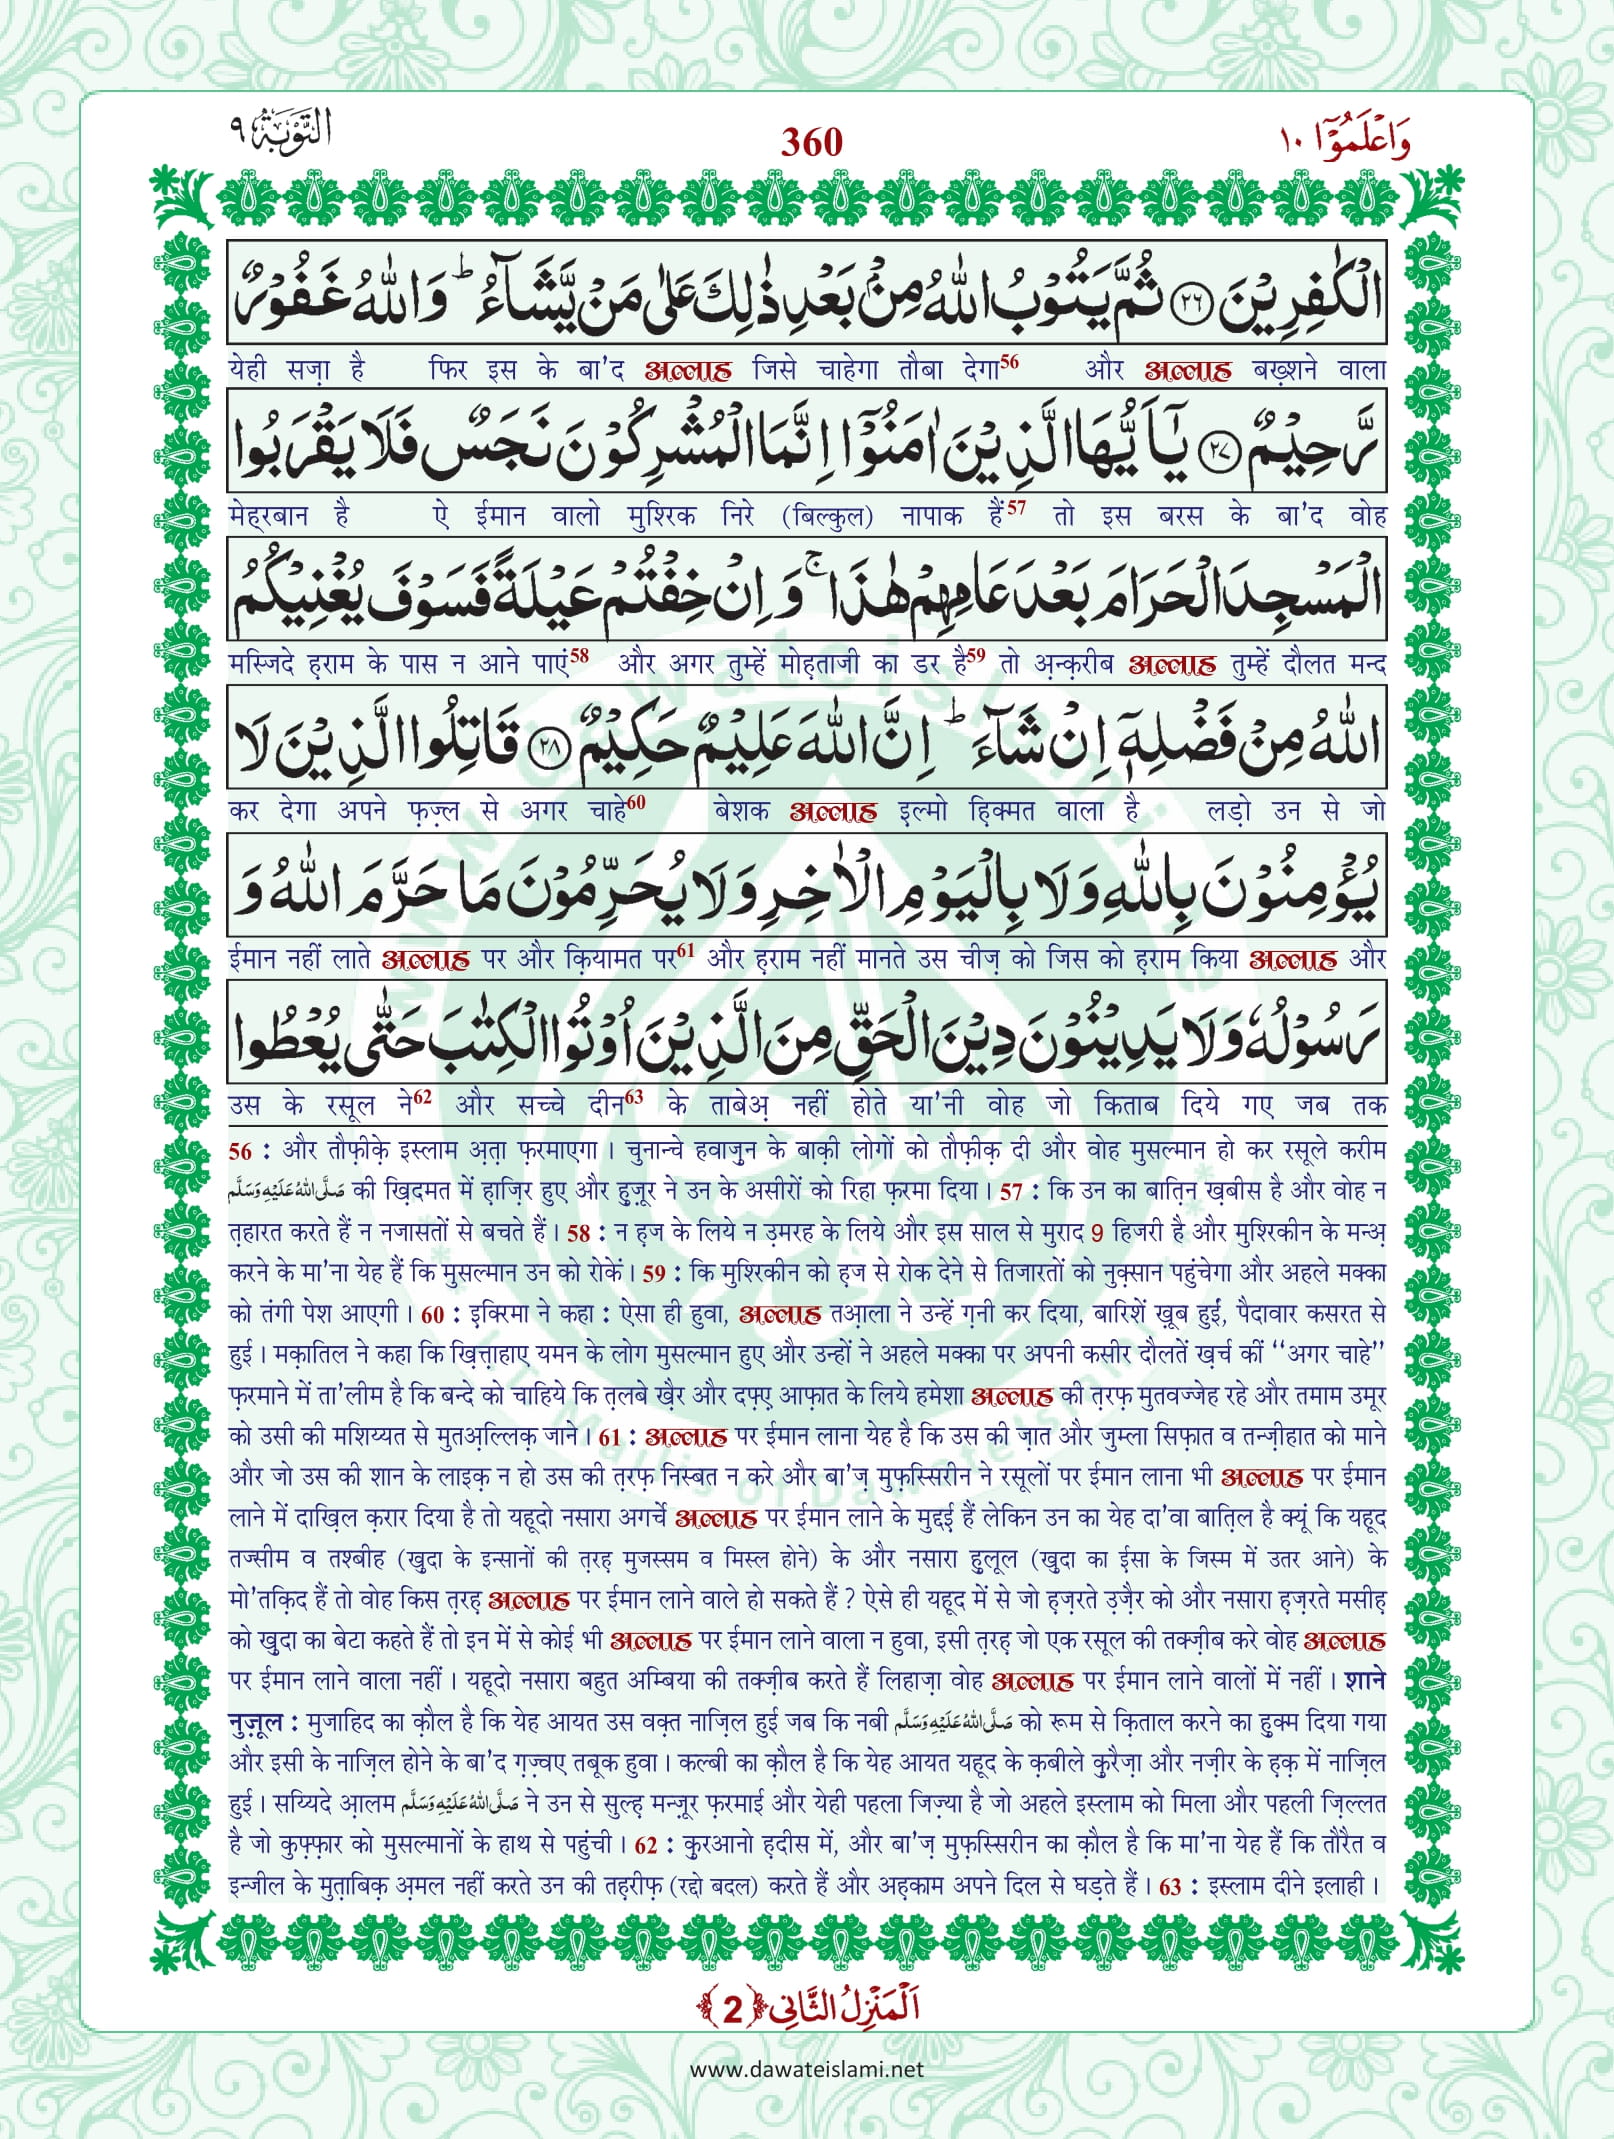 وَاعْلَمُوْۤا ١٠
360
التَّوْبَة ٩
الْكٰفِرِيْنَ ﴿٢٦﴾ ثُمَّ يَتُوْبُ اللّٰهُ مِنْۢ بَعْدِ ذٰلِكَ عَلٰى مَنْ يَّشَآءُ ؕ وَاللّٰهُ غَفُوْرٌ
येही सज़ा है फिर इस के बा'द अल्लाह जिसे चाहेगा तौबा देगा56 और अल्लाह बख़्शने वाला
رَّحِيْمٌ ﴿٢٧﴾ يٰۤاَيُّهَا الَّذِيْنَ اٰمَنُوْۤا اِنَّمَا الْمُشْرِكُوْنَ نَجَسٌ فَلَا يَقْرَبُوا
मेह्रबान है ऐ ईमान वालो मुश्रिक निरे (बिल्कुल) नापाक हैं57 तो इस बरस के बा'द वोह
الْمَسْجِدَ الْحَرَامَ بَعْدَ عَامِهِمْ هٰذَا ۚ وَ اِنْ خِفْتُمْ عَيْلَةً فَسَوْفَ يُغْنِيْكُمُ
मस्जिदे ह़राम के पास न आने पाएं58 और अगर तुम्हें मोह़ताजी का डर है59 तो अ़न्क़रीब अल्लाह तुम्हें दौलत मन्द
اللّٰهُ مِنْ فَضْلِهٖۤ اِنْ شَآءَ ؕ اِنَّ اللّٰهَ عَلِيْمٌ حَكِيْمٌ ﴿٢٨﴾ قَاتِلُوا الَّذِيْنَ لَا
कर देगा अपने फ़ज़्ल से अगर चाहे60 बेशक अल्लाह इ़ल्मो ह़िक्मत वाला है लड़ो उन से जो
يُؤْمِنُوْنَ بِاللّٰهِ وَلَا بِالْيَوْمِ الْاٰخِرِ وَلَا يُحَرِّمُوْنَ مَا حَرَّمَ اللّٰهُ وَ
ईमान नहीं लाते अल्लाह पर और क़ियामत पर61 और ह़राम नहीं मानते उस चीज़ को जिस को ह़राम किया अल्लाह और
رَسُوْلُهٗ وَلَا يَدِيْنُوْنَ دِيْنَ الْحَقِّ مِنَ الَّذِيْنَ اُوْتُوا الْكِتٰبَ حَتّٰى يُعْطُوا
उस के रसूल ने62 और सच्चे दीन63 के ताबेअ़ नहीं होते या'नी वोह जो किताब दिये गए जब तक
56 : और तौफ़ीक़े इस्लाम अ़त़ा फ़रमाएगा । चुनान्चे हवाजुन के बाक़ी लोगों को तौफ़ीक़ दी और वोह मुसल्मान हो कर रसूले करीम
صَلَّى اللّٰهُ عَلَيْهِ وَسَلَّم की ख़िदमत में ह़ाज़िर हुए और हुज़ूर ने उन के असीरों को रिहा फ़रमा दिया । 57 : कि उन का बात़िन ख़बीस है और वोह न
त़हारत करते हैं न नजासतों से बचते हैं । 58 : न ह़ज के लिये न उ़मरह के लिये और इस साल से मुराद 9 हिजरी है और मुश्रिकीन के मन्अ़
करने के मा'ना येह हैं कि मुसल्मान उन को रोकें । 59 : कि मुश्रिकीन को ह़ज से रोक देने से तिजारतों को नुक़्सान पहुंचेगा और अहले मक्का
को तंगी पेश आएगी । 60 : इ़क्रिमा ने कहा : ऐसा ही हुवा, अल्लाह तआ़ला ने उन्हें ग़नी कर दिया, बारिशें ख़ूब हुईं, पैदावार कसरत से
हुई । मक़ातिल ने कहा कि ख़ित़्त़ाहाए यमन के लोग मुसल्मान हुए और उन्हों ने अहले मक्का पर अपनी कसीर दौलतें ख़र्च कीं ‘‘अगर चाहे’’
फ़रमाने में ता'लीम है कि बन्दे को चाहिये कि त़लबे ख़ैर और दफ़्ए आफ़ात के लिये हमेशा अल्लाह की त़रफ़ मुतवज्जेह रहे और तमाम उमूर
को उसी की मशिय्यत से मुतअ़ल्लिक़ जाने । 61 : अल्लाह पर ईमान लाना येह है कि उस की ज़ात और जुम्ला सिफ़ात व तन्ज़ीहात को माने
और जो उस की शान के लाइक़ न हो उस की त़रफ़ निस्बत न करे और बा'ज़ मुफ़स्सिरीन ने रसूलों पर ईमान लाना भी अल्लाह पर ईमान
लाने में दाख़िल क़रार दिया है तो यहूदो नसारा अगर्चे अल्लाह पर ईमान लाने के मुद्दई हैं लेकिन उन का येह दा'वा बात़िल है क्यूं कि यहूद
तज्सीम व तश्बीह (ख़ुदा के इन्सानों की त़रह़ मुजस्सम व मिस्ल होने) के और नसारा हुलूल (ख़ुदा का ईसा के जिस्म में उतर आने) के
मो'तक़िद हैं तो वोह किस त़रह़ अल्लाह पर ईमान लाने वाले हो सकते हैं ? ऐसे ही यहूद में से जो ह़ज़रते उ़ज़ैर को और नसारा ह़ज़रते मसीह़
को ख़ुदा का बेटा कहते हैं तो इन में से कोई भी अल्लाह पर ईमान लाने वाला न हुवा, इसी त़रह़ जो एक रसूल की तक्ज़ीब करे वोह अल्लाह
पर ईमान लाने वाला नहीं । यहूदो नसारा बहुत अम्बिया की तक्ज़ीब करते हैं लिहाज़ा वोह अल्लाह पर ईमान लाने वालों में नहीं । शाने
नुज़ूल : मुजाहिद का क़ौल है कि येह आयत उस वक़्त नाज़िल हुई जब कि नबी صَلَّى اللّٰهُ عَلَيْهِ وَسَلَّم को रूम से क़िताल करने का हुक्म दिया गया
और इसी के नाज़िल होने के बा'द ग़ज़्वए तबूक हुवा । कल्बी का क़ौल है कि येह आयत यहूद के क़बीले क़ुरैज़ा और नज़ीर के ह़क़ में नाज़िल
हुई । सय्यिदे आ़लम صَلَّى اللّٰهُ عَلَيْهِ وَسَلَّم ने उन से सुल्ह़ मन्ज़ूर फ़रमाई और येही पहला जिज़्या है जो अहले इस्लाम को मिला और पहली ज़िल्लत
है जो कुफ़्फ़ार को मुसल्मानों के हाथ से पहुंची । 62 : क़ुरआनो ह़दीस में, और बा'ज़ मुफ़स्सिरीन का क़ौल है कि मा'ना येह हैं कि तौरैत व
इन्जील के मुत़ाबिक़ अ़मल नहीं करते उन की तह़रीफ़ (रद्दो बदल) करते हैं और अह़काम अपने दिल से घड़ते हैं । 63 : इस्लाम दीने इलाही ।
اَلْمَنْزِلُ الثَّانِى ﴿2﴾
www.dawateislami.net